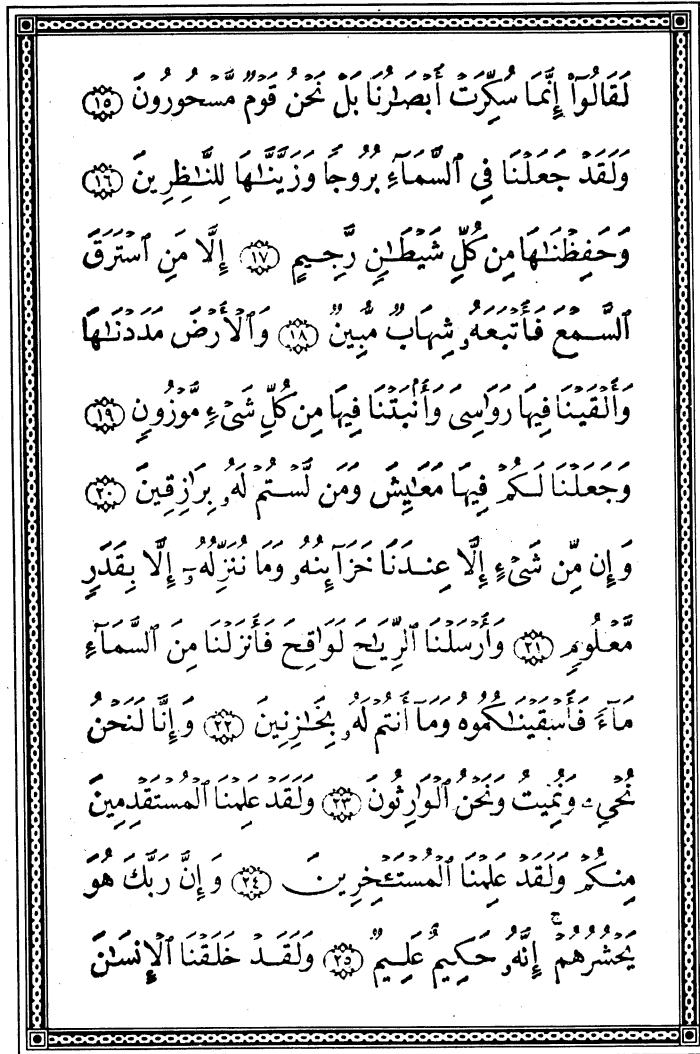 لَقَالُوٓا۟ إِنَّمَا سُكِّرَتْ أَبْصَـٰرُنَا بَلْ نَحْنُ قَوْمٌ مَّسْحُورُونَ ﴿١٥﴾
وَلَقَدْ جَعَلْنَا فِي ٱلسَّمَآءِ بُرُوجًا وَزَيَّنَّـٰهَا لِلنَّـٰظِرِينَ ﴿١٦﴾
وَحَفِظْنَـٰهَا مِن كُلِّ شَيْطَـٰنٍ رَّجِيمٍ ﴿١٧﴾ إِلَّا مَنِ ٱسْتَرَقَ
ٱلسَّمْعَ فَأَتْبَعَهُۥ شِهَابٌ مُّبِينٌ ﴿١٨﴾ وَٱلْأَرْضَ مَدَدْنَـٰهَا
وَأَلْقَيْنَا فِيهَا رَوَٰسِىَ وَأَنۢبَتْنَا فِيهَا مِن كُلِّ شَىْءٍ مَّوْزُونٍ ﴿١٩﴾
وَجَعَلْنَا لَكُمْ فِيهَا مَعَـٰيِشَ وَمَن لَّسْتُمْ لَهُۥ بِرَٰزِقِينَ ﴿٢٠﴾
وَإِن مِّن شَىْءٍ إِلَّا عِندَنَا خَزَآئِنُهُۥ وَمَا نُنَزِّلُهُۥٓ إِلَّا بِقَدَرٍ
مَّعْلُومٍ ﴿٢١﴾ وَأَرْسَلْنَا ٱلرِّيَـٰحَ لَوَٰقِحَ فَأَنزَلْنَا مِنَ ٱلسَّمَآءِ
مَآءً فَأَسْقَيْنَـٰكُمُوهُ وَمَآ أَنتُمْ لَهُۥ بِخَـٰزِنِينَ ﴿٢٢﴾ وَإِنَّا لَنَحْنُ
نُحْىِۦ وَنُمِيتُ وَنَحْنُ ٱلْوَٰرِثُونَ ﴿٢٣﴾ وَلَقَدْ عَلِمْنَا ٱلْمُسْتَقْدِمِينَ
مِنكُمْ وَلَقَدْ عَلِمْنَا ٱلْمُسْتَـْٔخِرِينَ ﴿٢٤﴾ وَإِنَّ رَبَّكَ هُوَ
يَحْشُرُهُمْ ۚ إِنَّهُۥ حَكِيمٌ عَلِيمٌ ﴿٢٥﴾ وَلَقَدْ خَلَقْنَا ٱلْإِنسَـٰنَ